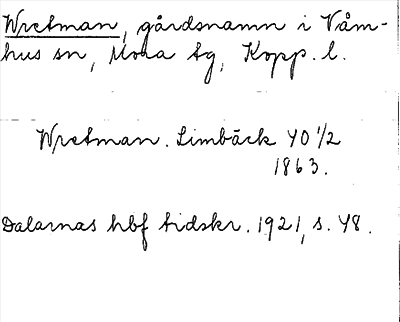 Wretman, gårdsnamn i Våm-
hus sn, Mora tg, Kopp. l.
Wretman. Limbäck YO 1/2
1863.
Dalarnas hbf tidskr. 1921, s. 48.